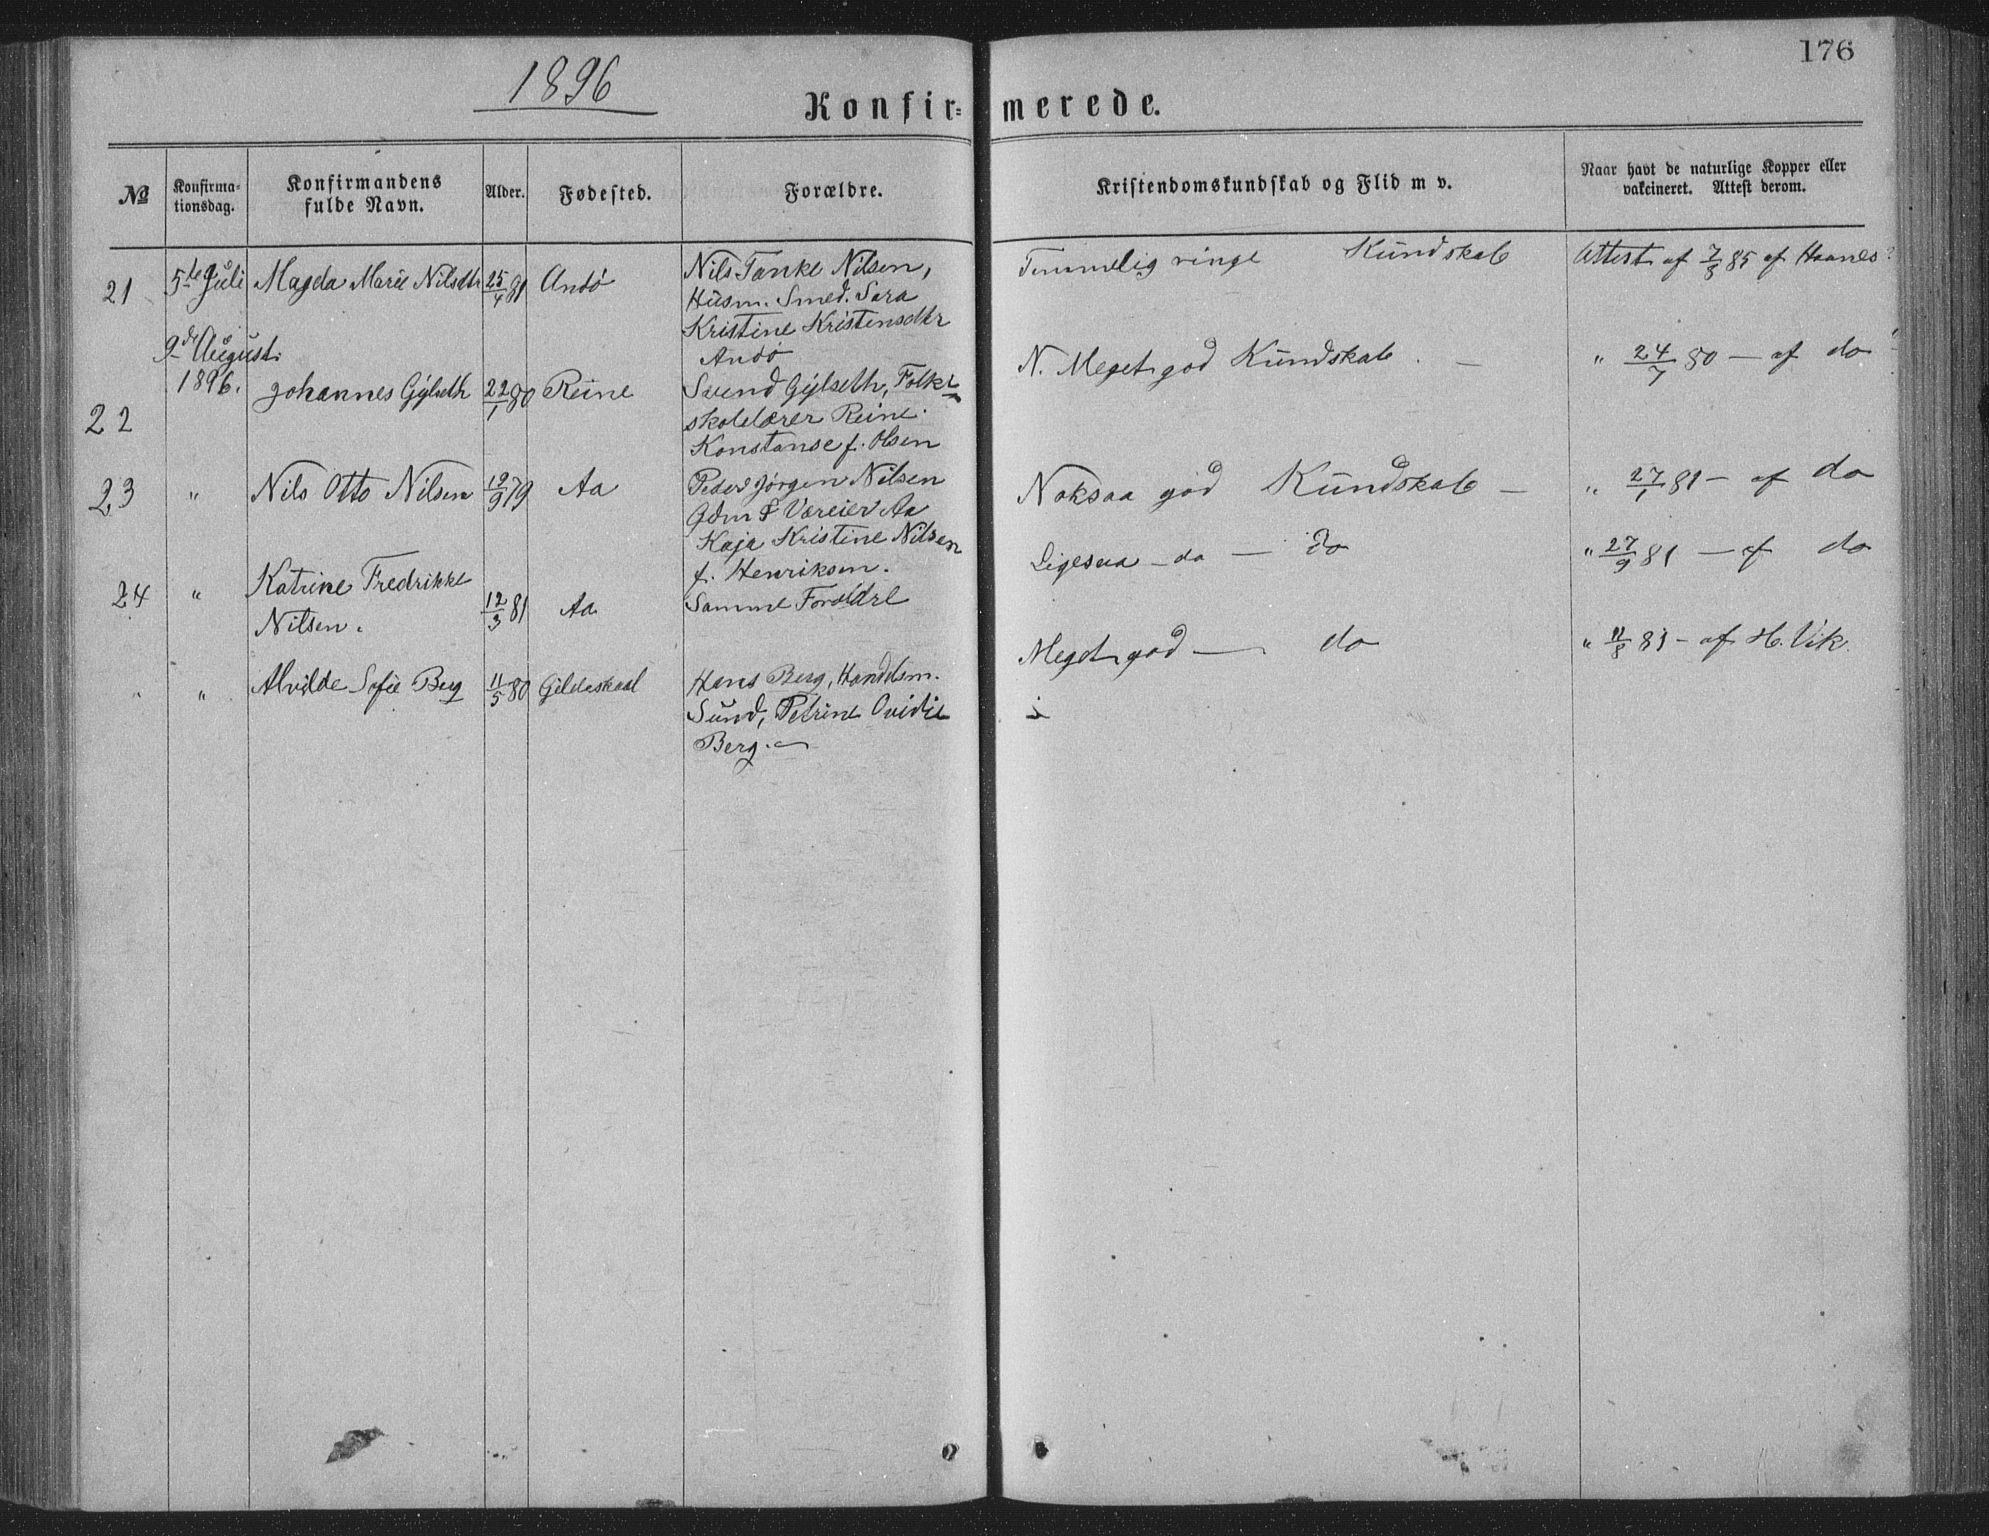 176
1896
Konfir= merede.
№
Konfirma-
tionsdag.
Konfirmandens
fulde Navn.
Alder.
Fødested.
Forældre.
Kristendomskundskab og Flid m v.
Naar havt de naturlige Kopper eller
vakcineret. Attest derom.
21 5te Juli Magda Marie Nilsdtr 25/4 81 Andö Nils Tanke Nilsen, Temmelig ringe Kundskab Attest af 7/8 85 af Haanes
Husm. Smed. Sara
Kristine Kristensdtr
Andö
9de August
1896.
22 Johannes Gylseth 22/1 80 Reine Svend Gylseth, Folke N. Meget god Kundskab. — " 24/7 80 — af do
skolelærer Reine.
Konstanse f. Olsen
23 " Nils Otto Nilsen 12/9 79 Aa Peder Jørgen Nilsen Noksaa god Kundskab — " 27/1 81 — af do
Gdm & Væreier Aa
Kaja Kristine Nilsen
f. Henriksen.
24 " Katrine Fredrikke
Nilsen. 12/3 81 Aa Samme Forældre Ligesaa — do — do " 27/9 81 — af do
" Alvilde Sofie Berg 11/5 80 Gildeskaal Hans Berg, Handelsm. Meget god — do " 11/8 81 — af H. Vik.
Sund, Petrine Ovidie
Berg.